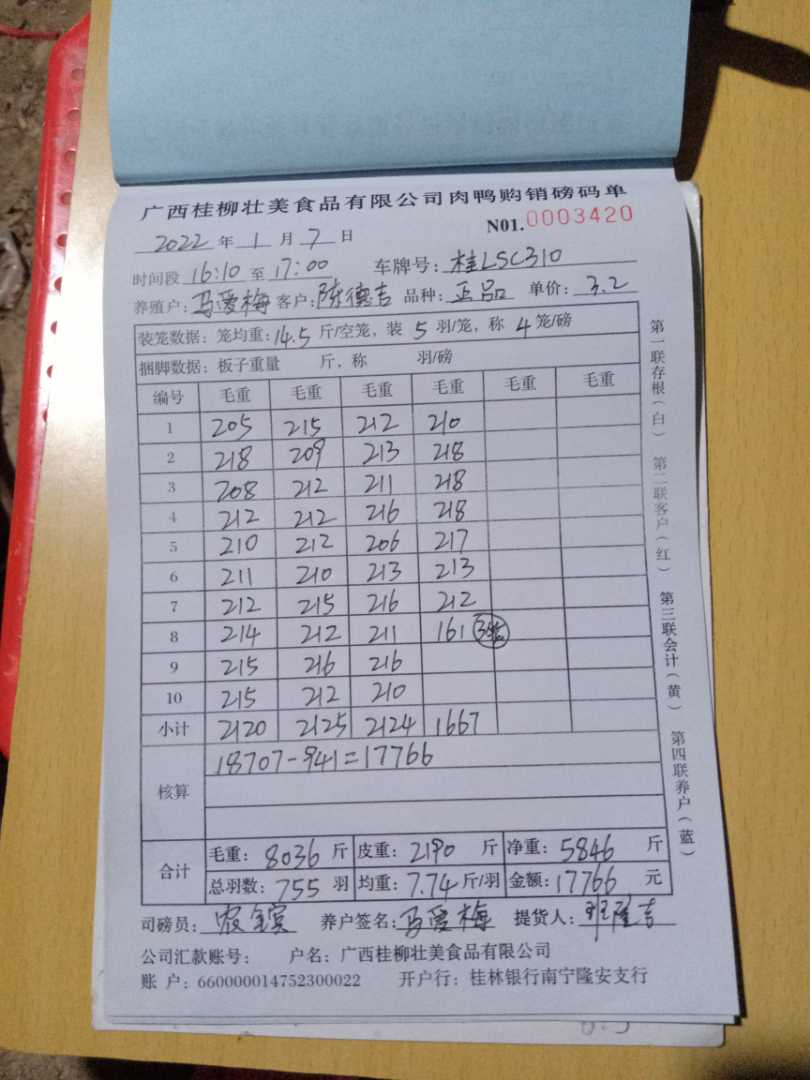 广西桂柳壮美食品有限公司肉鸭购销磅码单
N01.0003420
2022年1月7日
时间段 16:10 至 17:00 车牌号: 桂LSC310
养殖户: 马爱梅 客户: 陈德吉 品种: 正品 单价: 3.2
装笼数据: 笼均重: 14.5 斤/空笼, 装 5 羽/笼, 称 4 笼/磅
捆脚数据: 板子重量 斤, 称 羽/磅
编号 毛重 毛重 毛重 毛重 毛重 毛重
1 205 215 212 210
2 218 209 213 218
3 208 212 211 218
4 212 212 216 218
5 210 212 206 217
6 211 210 213 213
7 212 215 216 212
8 214 212 211 161
9 215 216 216
10 215 212 210
小计 2120 2125 2124 1667
核算 18707-941=17766
合计 毛重: 8036 斤 皮重: 2190 斤 净重: 5846 斤
总羽数: 755 羽 均重: 7.74 斤/羽 金额: 17766 元
司磅员: 农全宾 养户签名: 马爱梅 提货人:
公司汇款账号: 户名: 广西桂柳壮美食品有限公司
账 户: 660000014752300022 开户行: 桂林银行南宁隆安支行
第一联存根(白) 第二联客户(红) 第三联会计(黄) 第四联养户(蓝)